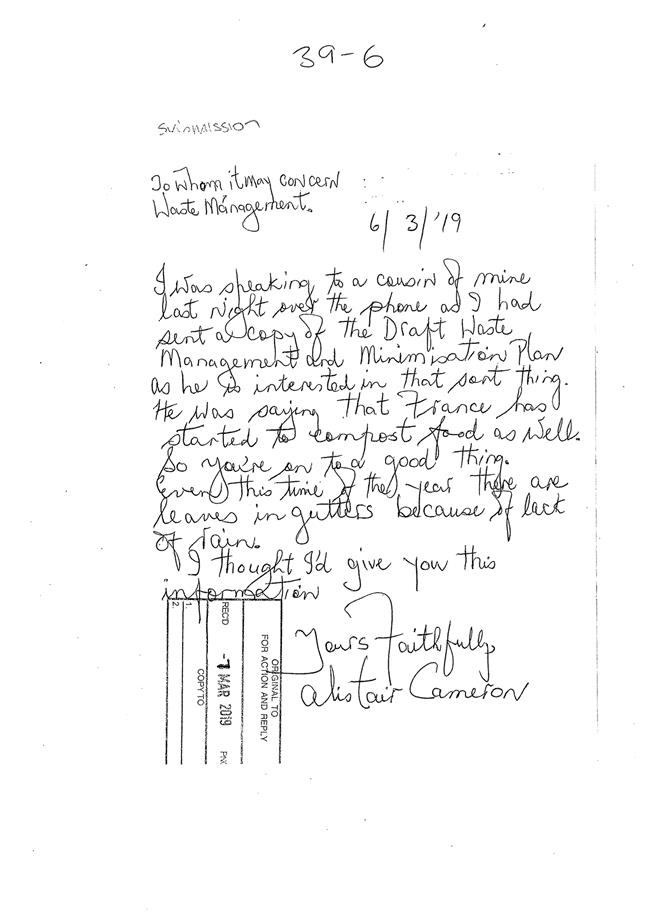 39-6
SUBMISSION
To Whom it may concern
Waste Management.
6/ 3/ '19
I was speaking to a cousin of mine
last night over the phone as I had
sent a copy of the Draft Waste
Management and Minimisation Plan
as he is interested in that sort thing.
He was saying that France has
started to compost food as well.
So you're on to a good thing.
Even this time of the year there are
leaves in gutters because of lack
of rain.
I thought I'd give you this
information
Yours Faithfully,
Alistair Cameron
ORIGINAL TO
FOR ACTION AND REPLY
RECD -7 MAR 2019
COPY TO
1.
2.